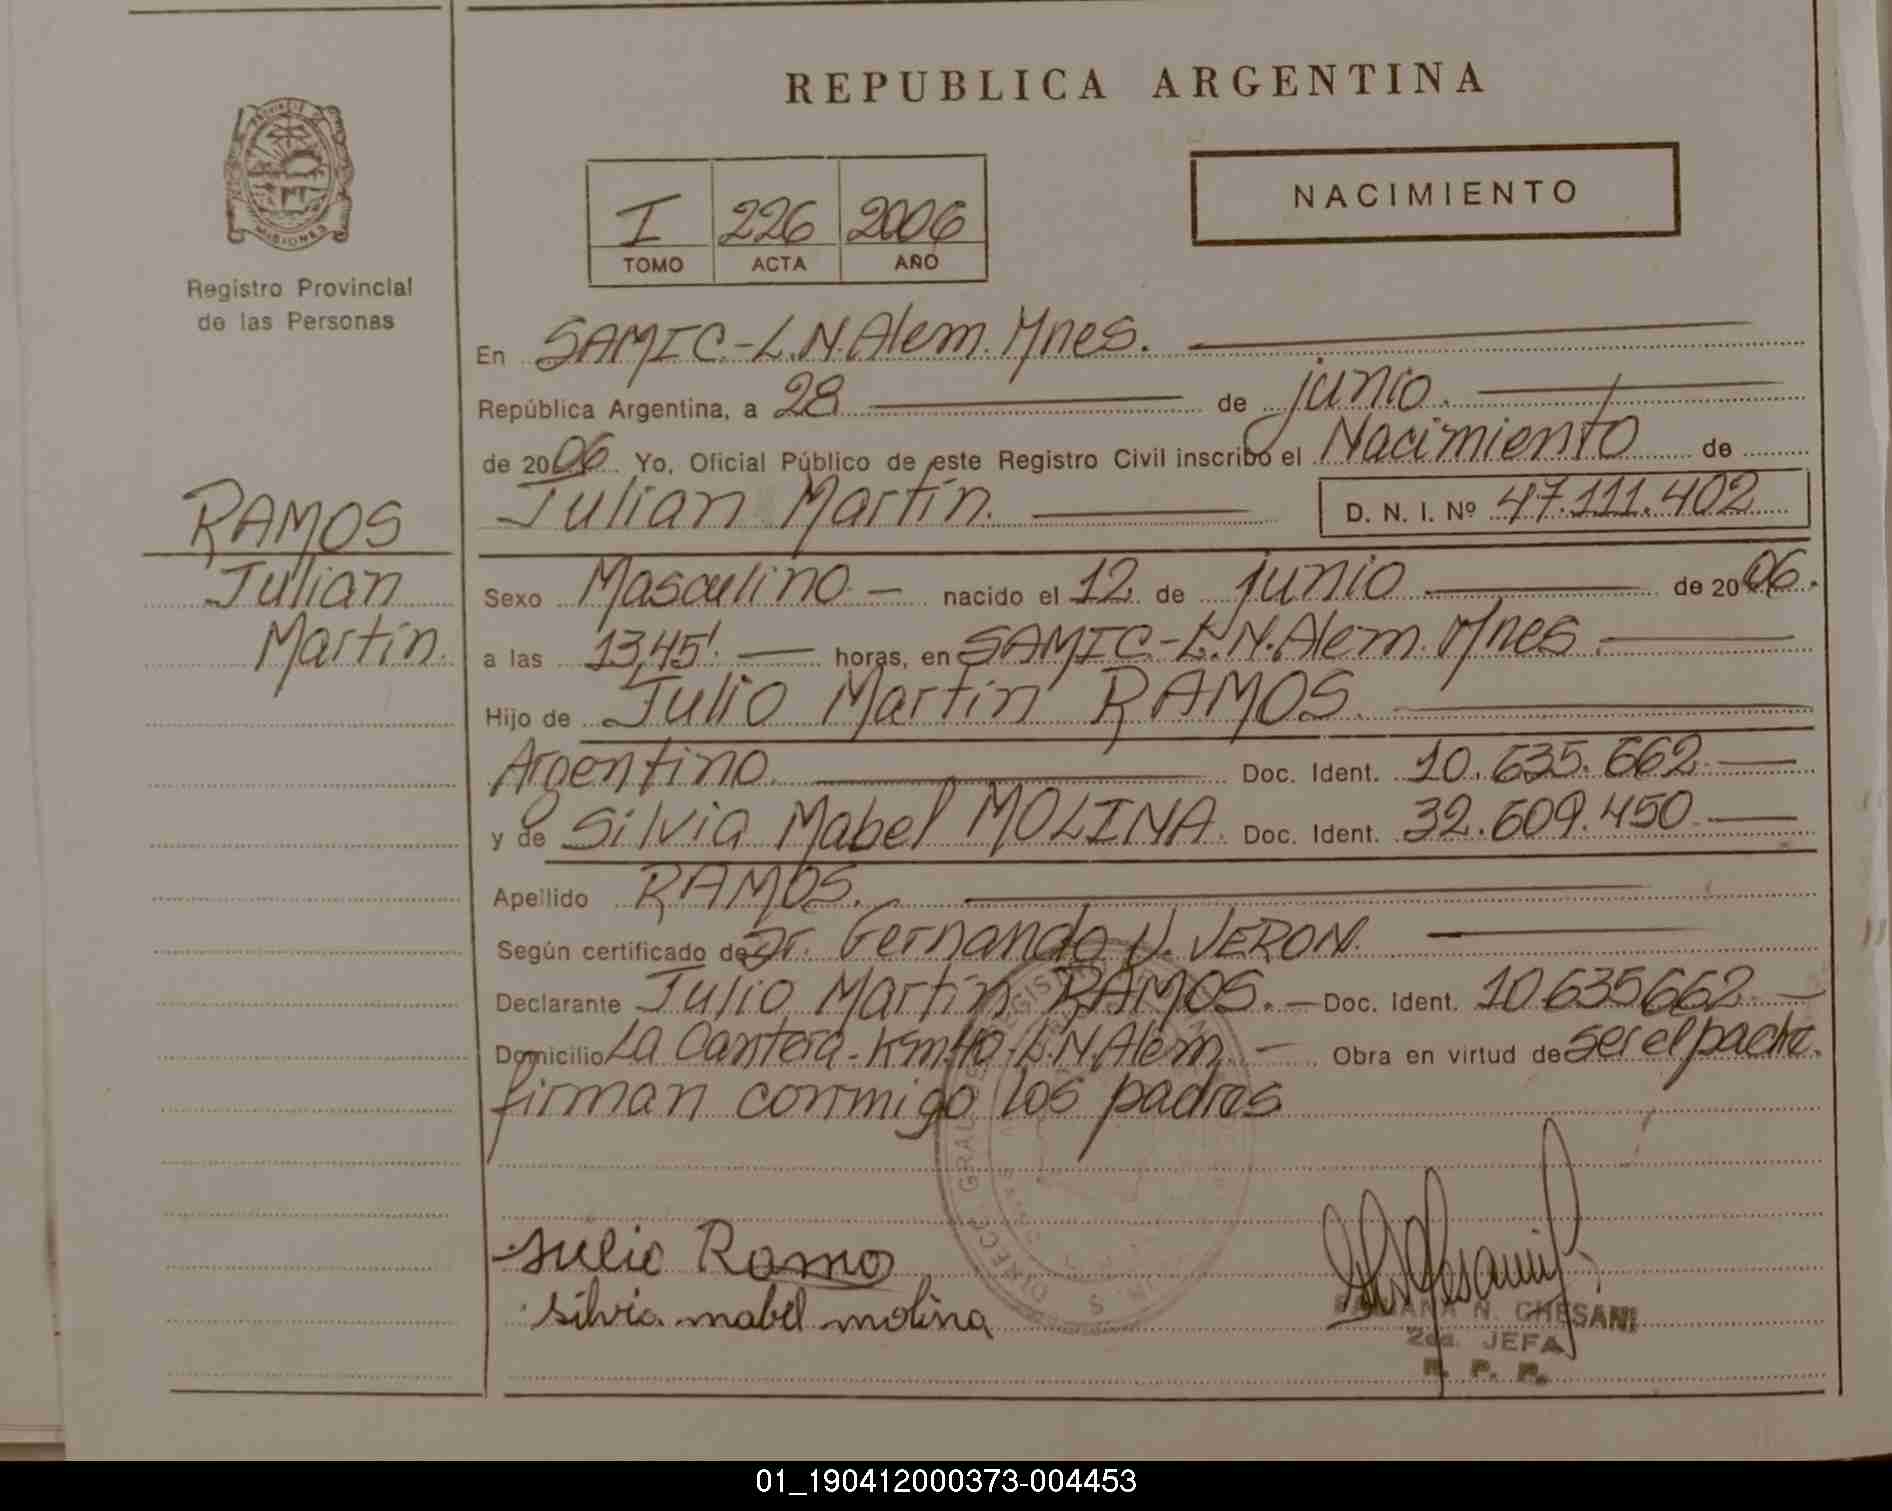 REPUBLICA ARGENTINA
PROVINCIA D
MISIONES
Registro Provincial
de las Personas
NACIMIENTO
I 226 2006
TOMO ACTA AÑO
En SAMIC-L.N.Alem. Mnes.
República Argentina, a 28 de junio.
de 2006 Yo, Oficial Público de este Registro Civil inscribo el Nacimiento de
Julian Martin. D. N. I. Nº 47.111.402
RAMOS
Julian
Martin.
Sexo Masculino - nacido el 12 de junio de 2006.
a las 13,45'. horas, en SAMIC-L.N.Alem. Mnes.
Hijo de Julio Martin RAMOS.
Argentino. Doc. Ident. 10.635.662
y de Silvia Mabel MOLINA. Doc. Ident. 32.609.450
Apellido RAMOS.
Según certificado de Dr. Fernando V. VERON.
Declarante Julio Martin RAMOS. - Doc. Ident. 10635662
Domicilio La Cantera-Km.40-L.N.Alem. - Obra en virtud de ser el padre.
firman conmigo los padres
Julio Ramo
silvia mabel molina
N. CHESANI
2da. JEFA
R. P. P.
01_190412000373-004453